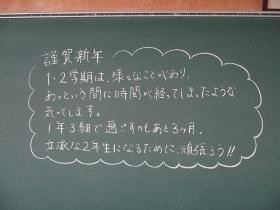 謹賀新年
1・2学期は、様々なことがあり、
あっという間に時間が経ってしまったような
気がします。
1年3組で過ごすのもあと3ヶ月。
立派な2年生になるために、頑張ろう!!